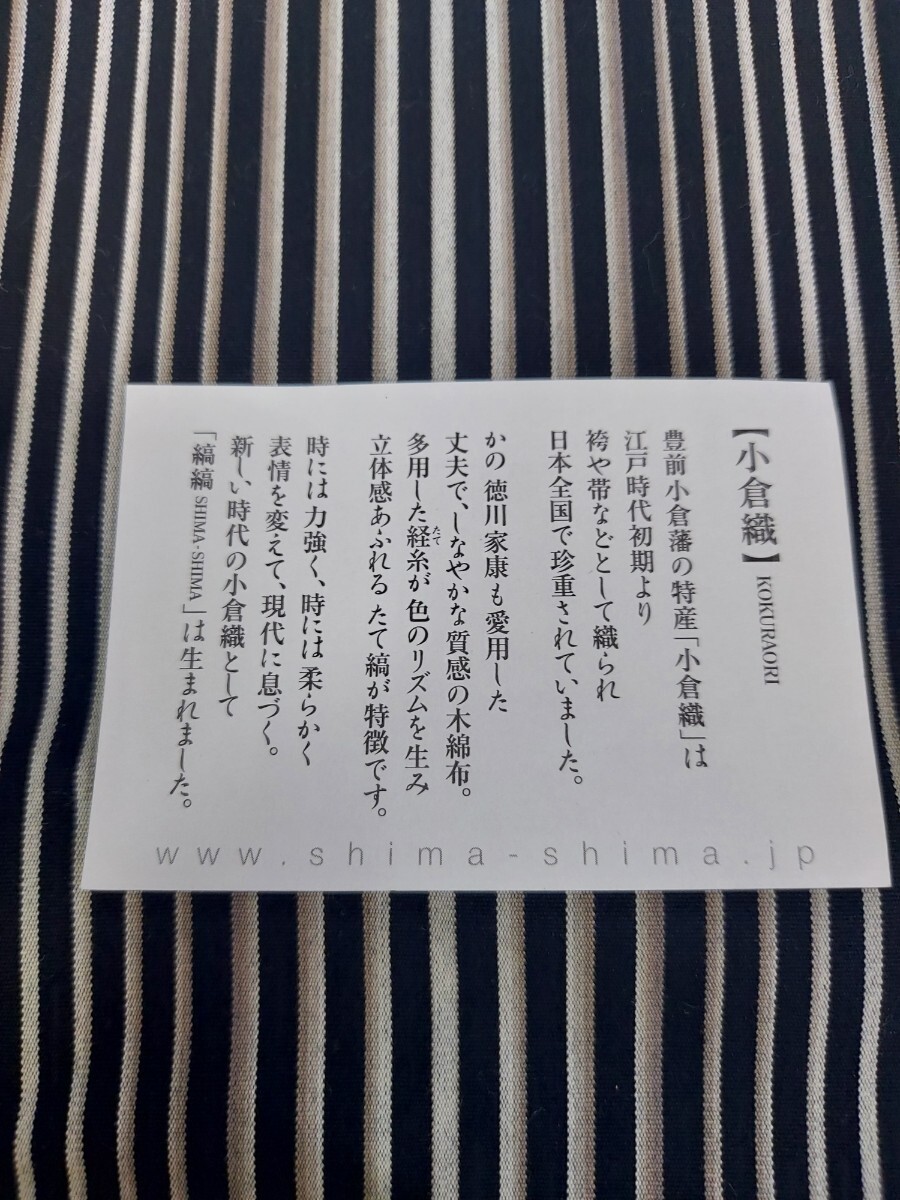 【小倉織】KOKURAORI
豊前小倉藩の特産「小倉織」は
江戸時代初期より
袴や帯などとして織られ
日本全国で珍重されていました。
かの 徳川家康も愛用した
丈夫で、しなやかな質感の木綿布。
多用した経糸が 色のリズムを生み
たて
立体感あふれる たて縞が特徴です。
時には 力強く、時には 柔らかく
表情を変えて、現代に息づく。
新しい時代の小倉織として
「縞縞 SHIMA-SHIMA」は生まれました。
www.shima-shima.jp